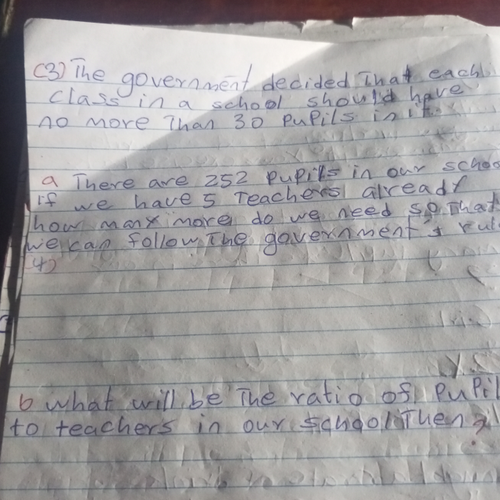 (3) The government decided That each
class in a school should have
no more Than 30 pupils in it.
a There are 252 pupils in our schoo
if we have 5 Teachers already
how many more do we need so That
we can follow The government's rul
4)
b what will be The ratio of pupil
to teachers in our school Then?